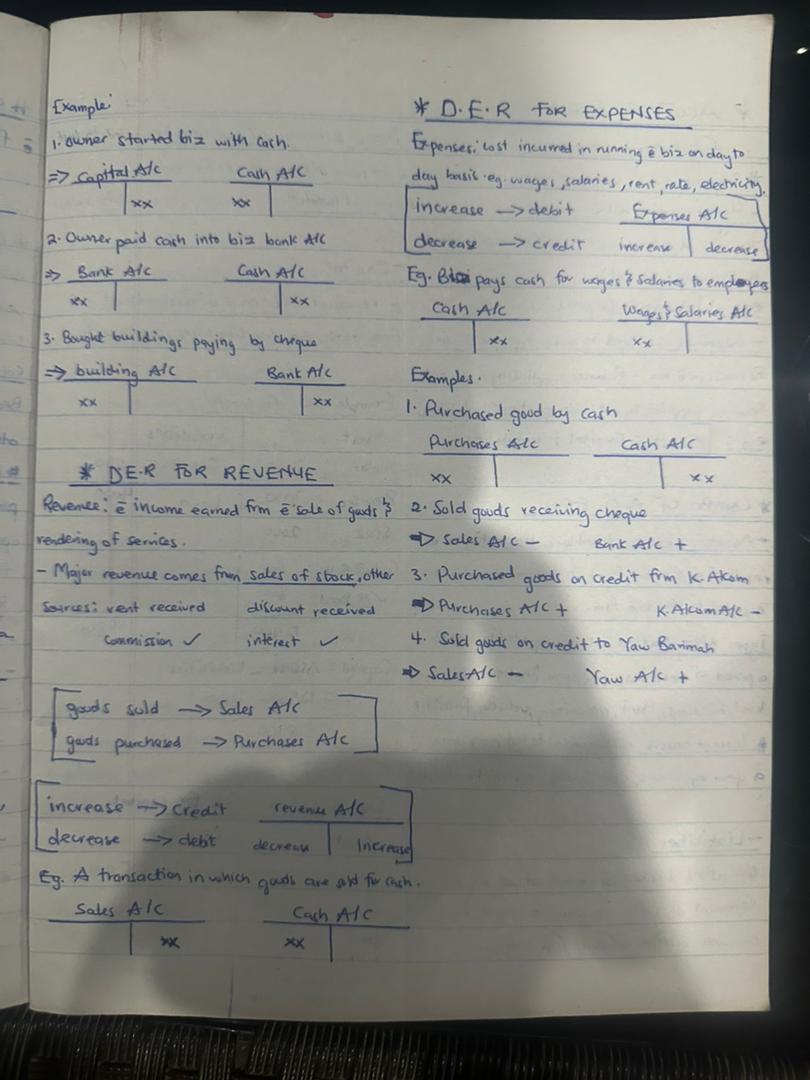 Example:
1. Owner started biz with cash.
=> Capital A/c Cash A/c
xx xx
2. Owner paid cash into biz bank A/c
=> Bank A/c Cash A/c
xx xx
3. Bought buildings paying by cheque
=> building A/c Bank A/c
xx xx
* D.E.R FOR REVENUE
Revenue: ē income earned frm ē sale of goods &
rendering of services.
- Major revenue comes from sales of stock, other
sources: rent received discount received
commission ✓ interest ✓
goods sold -> Sales A/c
goods purchased -> Purchases A/c
increase -> credit revenue A/c
decrease -> debit decrease Increase
Eg. A transaction in which goods are sold for cash.
Sales A/c Cash A/c
xx xx
* D.E.R FOR EXPENSES
Expenses: cost incurred in running ē biz on day to
day basis. eg. wages, salaries, rent, rate, electricity,
increase -> debit Expenses A/c
decrease -> credit increase decrease
Eg. Biz pays cash for wages & salaries to employees
Cash A/c Wages & Salaries A/c
xx xx
Examples.
1. Purchased good by cash
Purchases A/c Cash A/c
xx xx
2. Sold goods receiving cheque
=> Sales A/c - Bank A/c +
3. Purchased goods on credit frm K. Akom
=> Purchases A/c + K. Akom A/c -
4. Sold goods on credit to Yaw Barimah
=> Sales A/c - Yaw A/c +